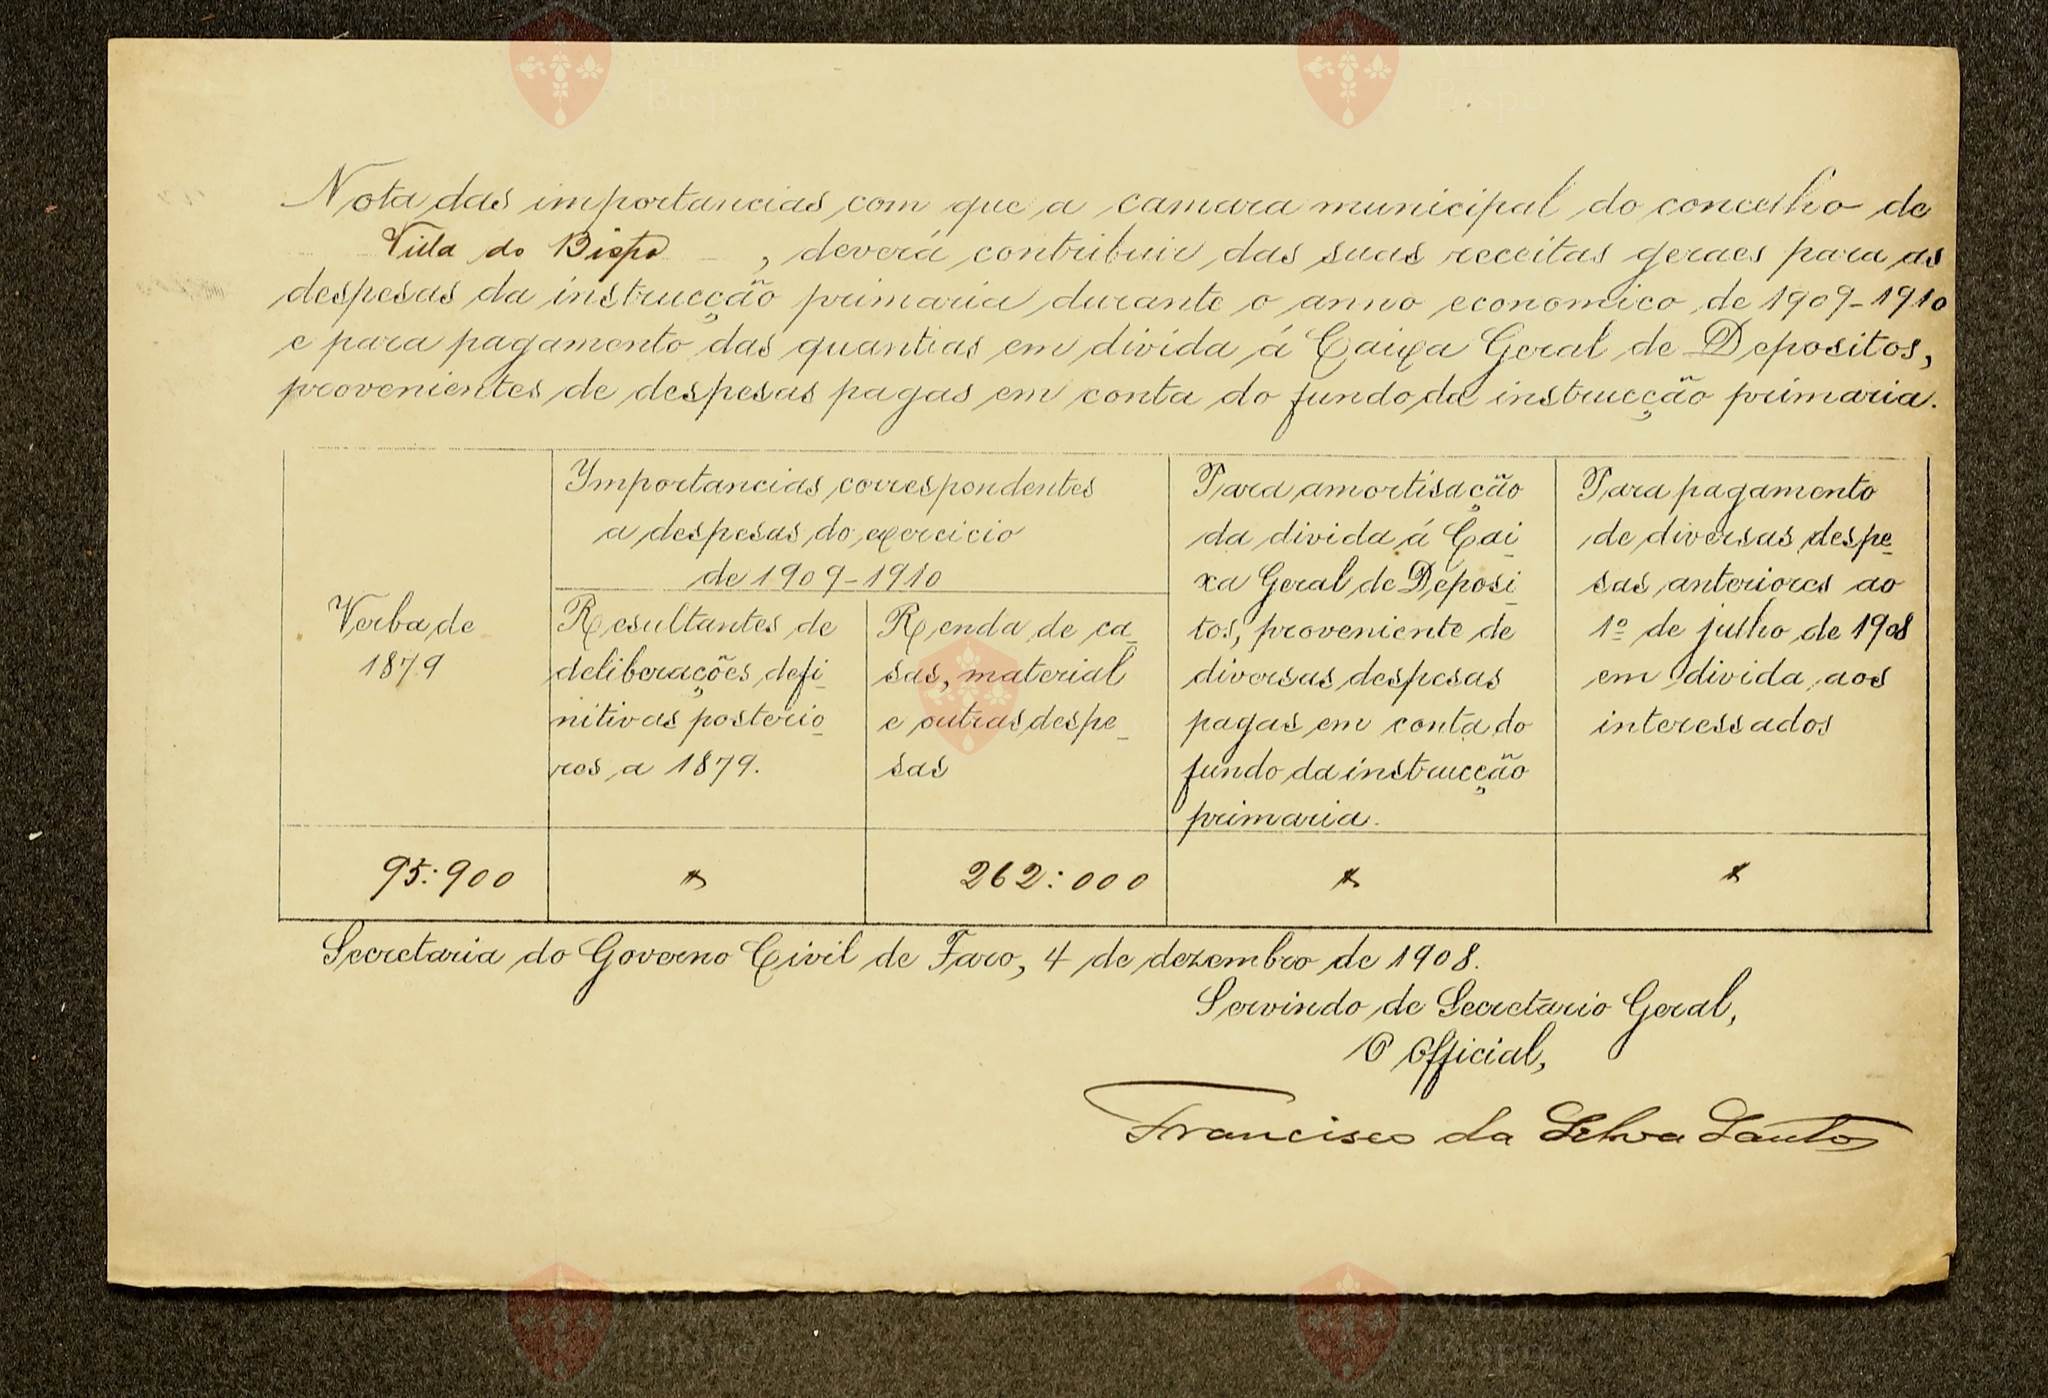 Nota das importancias com que a camara municipal do concelho de
Villa do Bispo, deverá contribuir das suas receitas geraes para as
despesas da instrucção primaria durante o anno economico de 1909-1910
e para pagamento das quantias em divida á Caixa Geral de Depositos,
provenientes de despesas pagas em conta do fundo da instrucção primaria.
Verba de
1879
Importancias correspondentes
a despesas do exercicio
de 1909-1910
Resultantes de
deliberações defi-
nitivas posterio-
res a 1879.
Renda de ca-
sas, material
e outras despe-
sas
Para amortisação
da divida á Cai-
xa Geral de Deposi-
tos, proveniente de
diversas despesas
pagas em conta do
fundo da instrucção
primaria.
Para pagamento
de diversas despe-
sas anteriores ao
1º de julho de 1908
em divida aos
interessados
95:900
262:000
Secretaria do Governo Civil de Faro, 4 de dezembro de 1908.
Servindo de Secretario Geral,
O Official,
Francisco da Silva Santos
Bispo
Bispo
Vila do
Bispo
Bispo